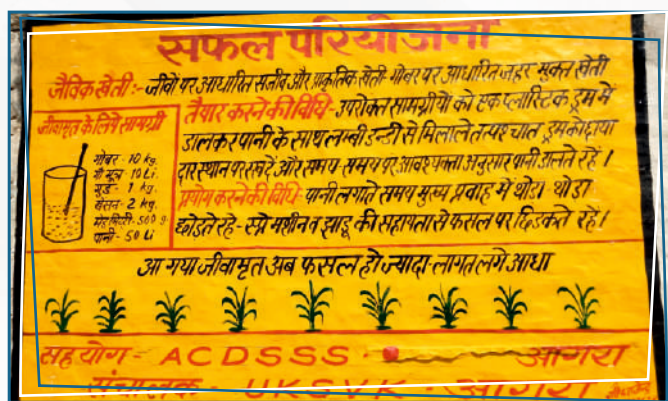 सफल परियोजना
जैविक खेती :- जीवों पर आधारित सजीव और प्राकृतिक खेती गोबर पर आधारित जहर मुक्त खेती
जीवामृत के लिये सामग्री
गोबर - 10 kg.
गौ मूत्र - 10 Li.
गुड़ - 1 kg.
बेसन - 2 kg.
मेड़ मिट्टी - 500 g.
पानी - 50 Li
तैयार करने की विधि - उपरोक्त सामग्रीयों को एक प्लास्टिक ड्रम में
डालकर पानी के साथ लम्बी डन्डी से मिलाले तत्पश्चात ड्रम को छाया
दार स्थान पर रखें और समय - समय पर आवश्यक्ता अनुसार पानी डालते रहें ।
प्रयोग करने की विधि - पानी लगाते समय मुख्य प्रवाह में थोडा - थोडा
छोड़ते रहे - स्प्रे मशीन व झाडू की सहायता से फसल पर छिडकते रहें।
आ गया जीवामृत अब फसल हो ज्यादा - लागत लगे आधा
सहयोग - ACDSSS - आगरा
संचालक - UKSVK - आगरा